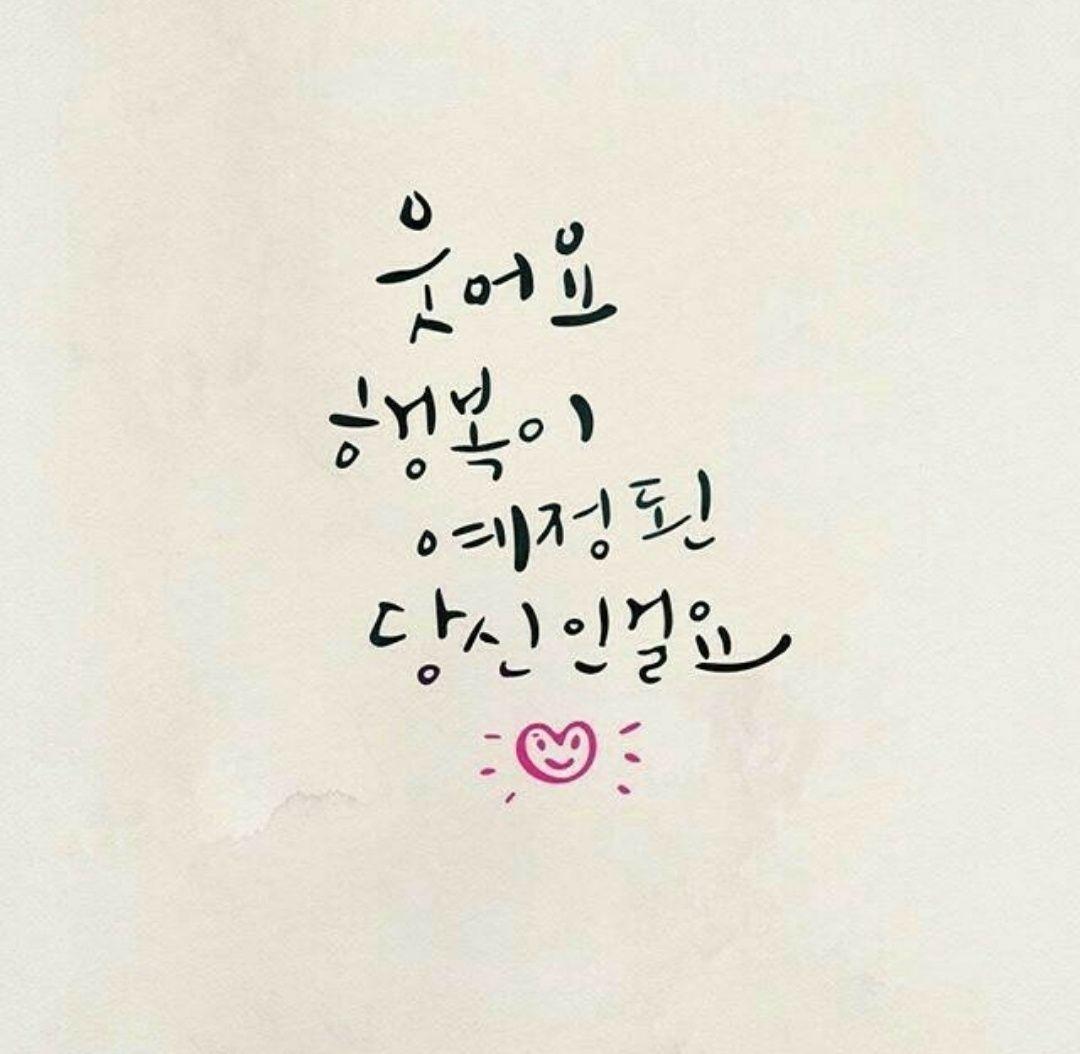 웃어요
행복이
예정된
당신인걸요